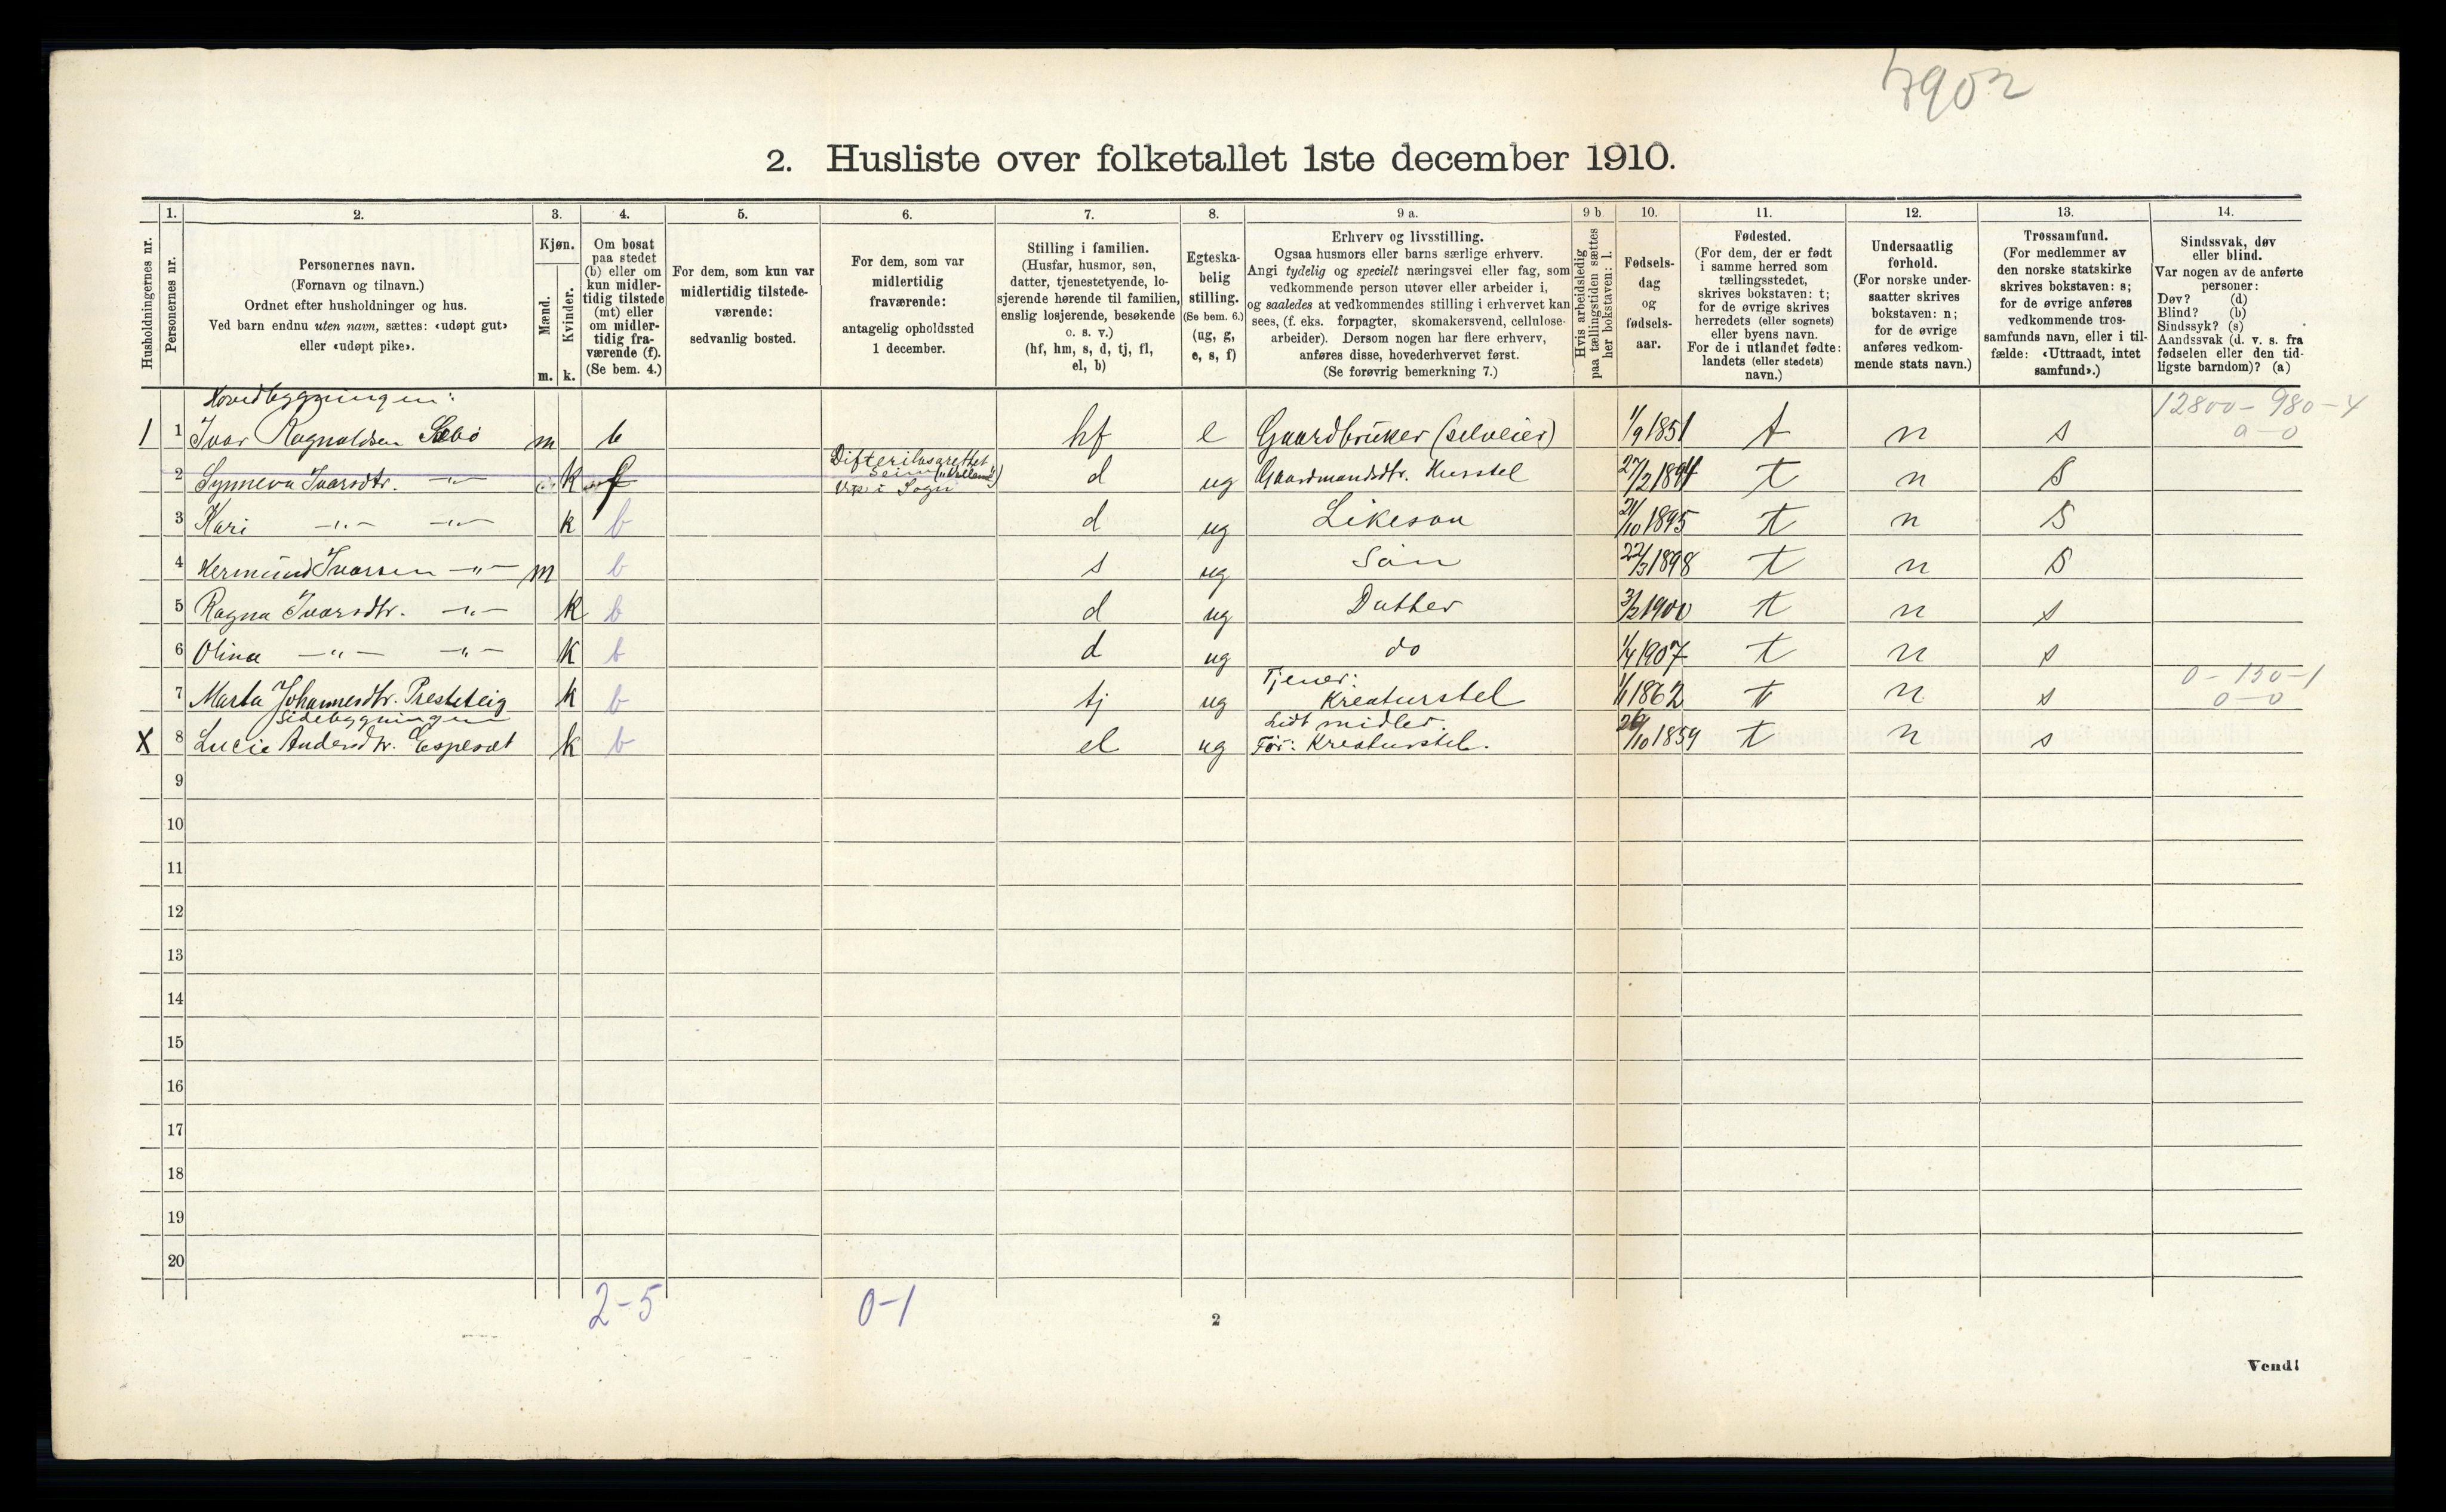 7902
2. Husliste over folketallet 1ste december 1910.
Husholdningernes nr.
1. Personernes nr.
2. Personernes navn.
(Fornavn og tilnavn.)
Ordnet efter husholdninger og hus.
Ved barn endnu uten navn, sættes: «udøpt gut»
eller «udøpt pike».
3. Kjøn.
Mænd. m.
Kvinder. k.
4. Om bosat
paa stedet
(b) eller om
kun midler-
tidig tilstede
(mt) eller
om midler-
tidig fra-
værende (f).
(Se bem. 4.)
5. For dem, som kun var
midlertidig tilstede-
værende:
sedvanlig bosted.
6. For dem, som var
midlertidig
fraværende:
antagelig opholdssted
1 december.
7. Stilling i familien.
(Husfar, husmor, søn,
datter, tjenestetyende, lo-
sjerende hørende til familien,
enslig losjerende, besøkende
o. s. v.)
(hf, hm, s, d, tj, fl,
el, b)
8. Egteska-
belig
stilling.
(Se bem. 6.)
(ug, g,
e, s, f)
9 a. Erhverv og livsstilling.
Ogsaa husmors eller barns særlige erhverv.
Angi tydelig og specielt næringsvei eller fag, som
vedkommende person utøver eller arbeider i,
og saaledes at vedkommendes stilling i erhvervet kan
sees, (f. eks. forpagter, skomakersvend, cellulose-
arbeider). Dersom nogen har flere erhverv,
anføres disse, hovederhvervet først.
(Se forøvrig bemerkning 7.)
9 b. Hvis arbeidsledig
paa tællingstiden sættes
her bokstaven: l.
10. Fødsels-
dag
og
fødsels-
aar.
11. Fødested.
(For dem, der er født
i samme herred som
tællingsstedet,
skrives bokstaven: t;
for de øvrige skrives
herredets (eller sognets)
eller byens navn.
For de i utlandet fødte:
landets (eller stedets)
navn.)
12. Undersaatlig
forhold.
(For norske under-
saatter skrives
bokstaven: n;
for de øvrige
anføres vedkom-
mende stats navn.)
13. Trossamfund.
(For medlemmer av
den norske statskirke
skrives bokstaven: s;
for de øvrige anføres
vedkommende tros-
samfunds navn, eller i til-
fælde: «Uttraadt, intet
samfund».)
14. Sindssvak, døv
eller blind.
Var nogen av de anførte
personer:
Døv? (d)
Blind? (b)
Sindssyk? (s)
Aandssvak (d. v. s. fra
fødselen eller den tid-
ligste barndom)? (a)
Hovedbygningen:
12800 - 980 - 4
0 - 0
1 1 Ivar Ragnaldsen Sæbø m b hf e Gaardbruker (selveier) 1/9 1851 t n s
2 Synneva Ivarsdtr. -"- k f Difterilasarettet Seim i Sogn d ug Gaardmandsdtr. Husstel 27/2 1894 t n s
3 Kari -"- -"- k b d ug Likesaa 21/10 1895 t n s
4 Hermund Ivarsen -"- m b s ug Søn 22/3 1898 t n s
5 Ragna Ivarsdtr. -"- k b d ug Datter 3/2 1900 t n s
6 Olina -"- -"- k b d ug do 1/4 1907 t n s
7 Marta Johannesdtr. Presteteig k b tj ug Tjener: Kreaturstel 1/1 1862 t n s 0 - 130 - 1
0 - 0
Sidebygningen
X 8 Lucie Andersdtr. Espesæt k b el ug Lidt midler. Før: Kreaturstel. 26/10 1859 t n s
9
10
11
12
13
14
15
16
17
18
19
20
2-5 0-1
2
Vend!